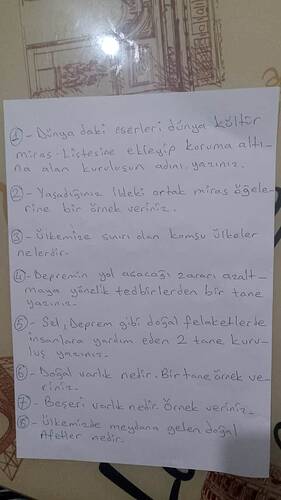 1 - Dünya daki eserleri dünya kültür
miras Listesine ekleyip koruma altı-
na alan kuruluşun adını yazınız.
2 - Yaşadığınız ildeki ortak miras öğele-
rine bir örnek veriniz.
3 - Ülkemize sınırı olan komşu ülkeler
nelerdir.
4 - Depremin yol açacağı zararı azalt-
maya yönelik tedbirlerden bir tane
yazınız.
5 - Sel, Deprem gibi doğal felaketlerde
insanlara yardım eden 2 tane kuru-
luş yazınız.
6 - Doğal varlık nedir. Bir tane örnek ve-
riniz.
7 - Beşeri varlık nedir. Örnek veriniz.
8 - Ülkemizde meydana gelen doğal
Afetler nedir.